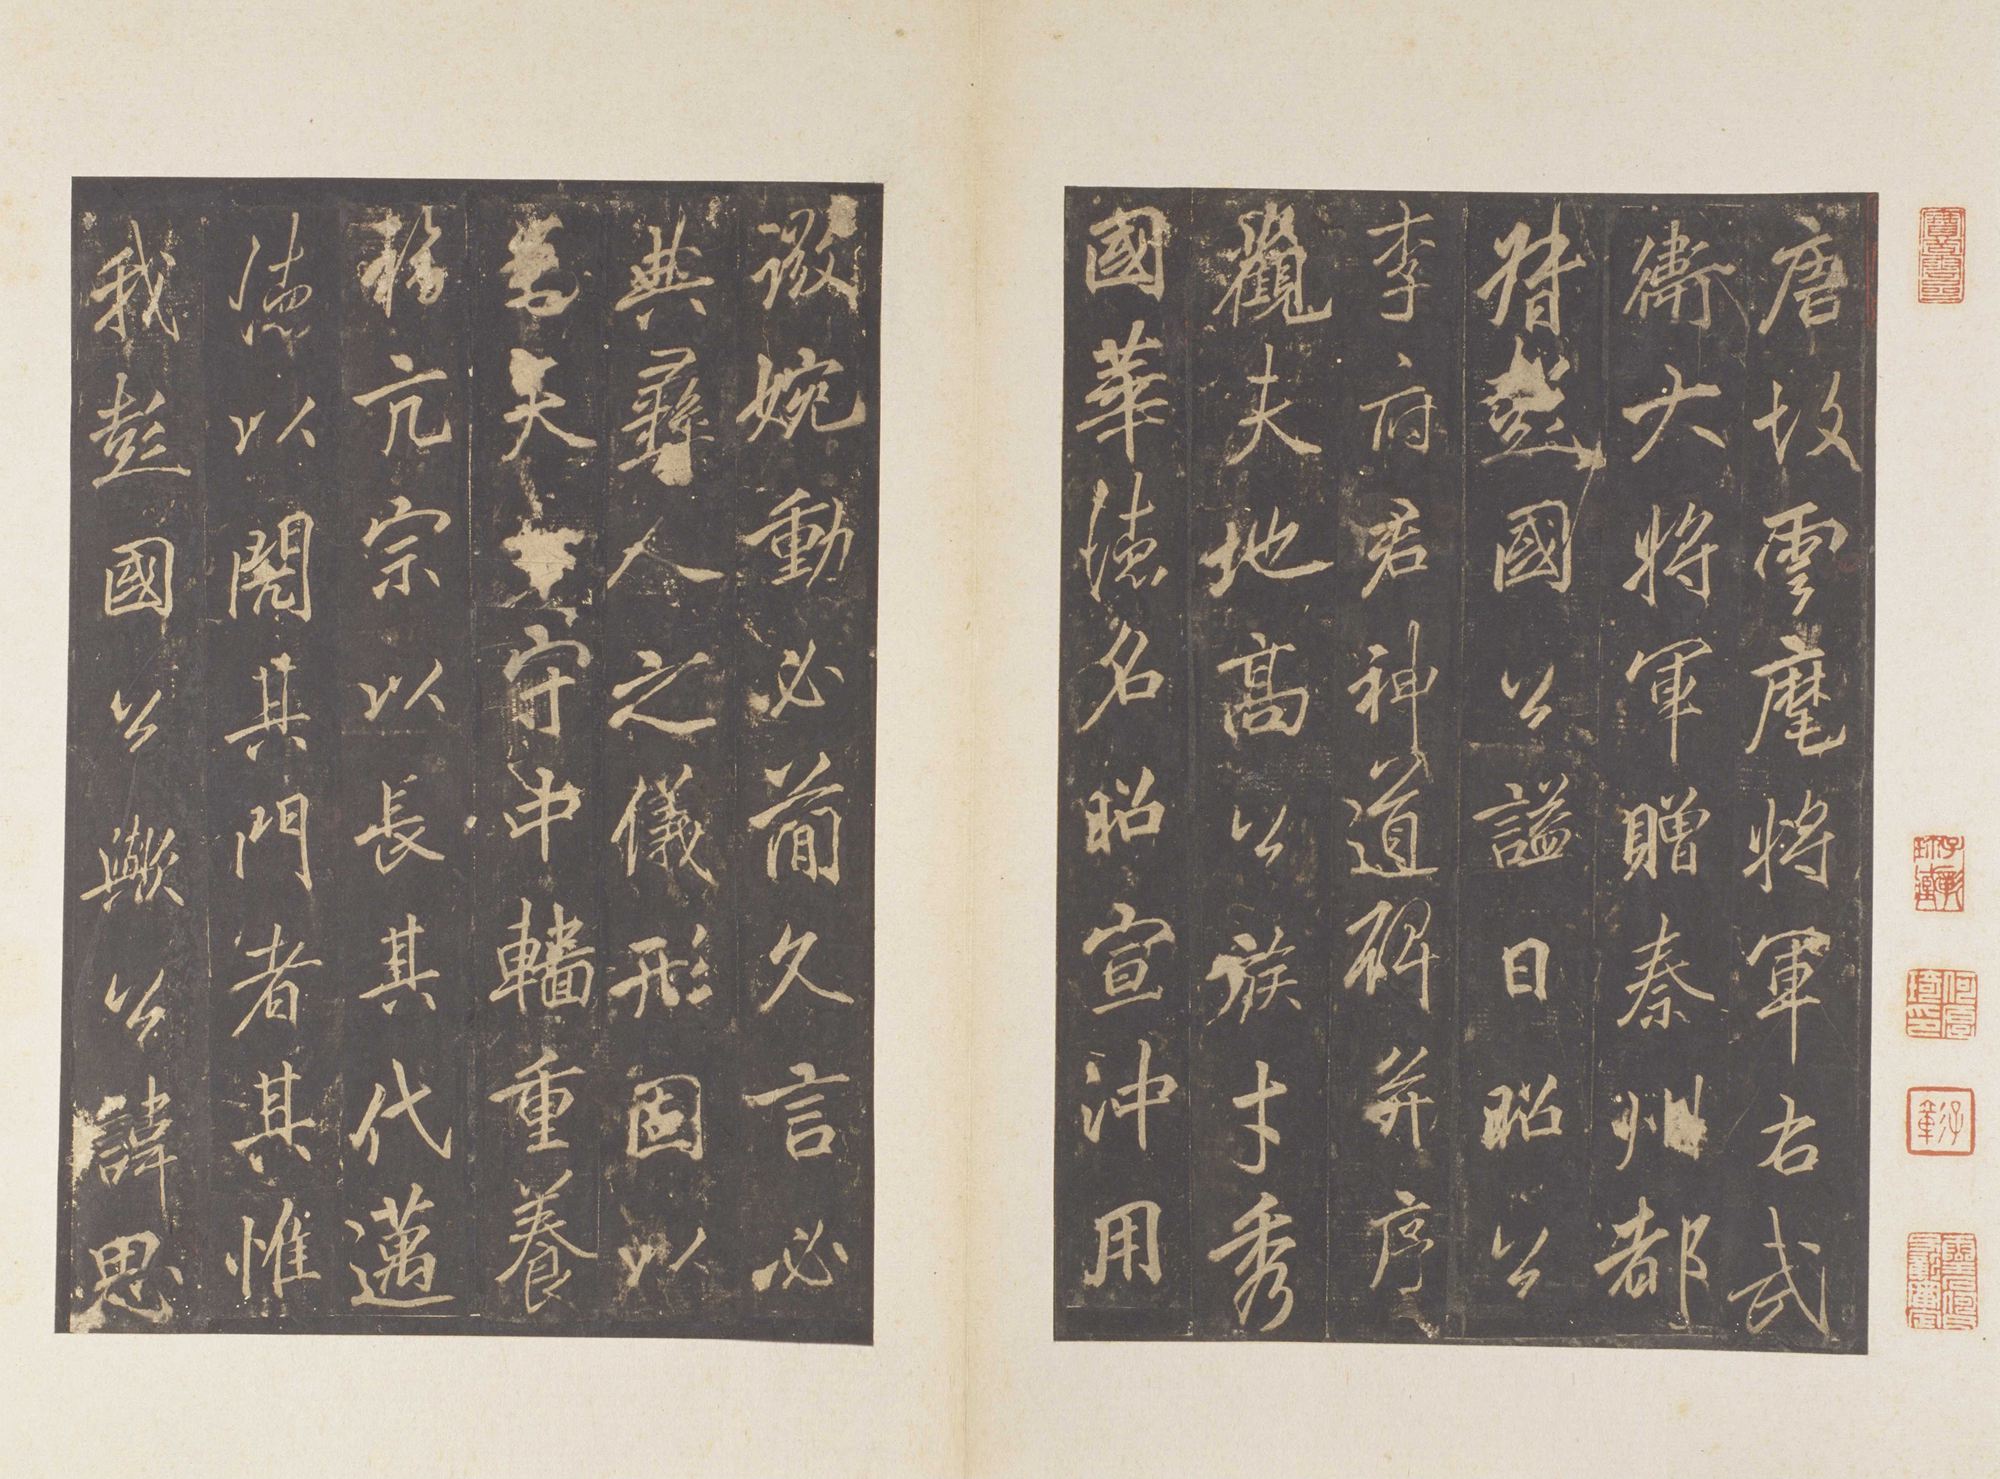 唐故雲麾將軍右武
衛大將軍贈秦州都
督彭國公謚曰昭公
李府君神道碑并序
觀夫地高公族才秀
國華德名昭宣沖用
微婉動必簡久言必
典彝人之儀形固以
為天守中轓重養
亢宗以長其代邁
德以其門者其惟
我彭國公歟公諱思